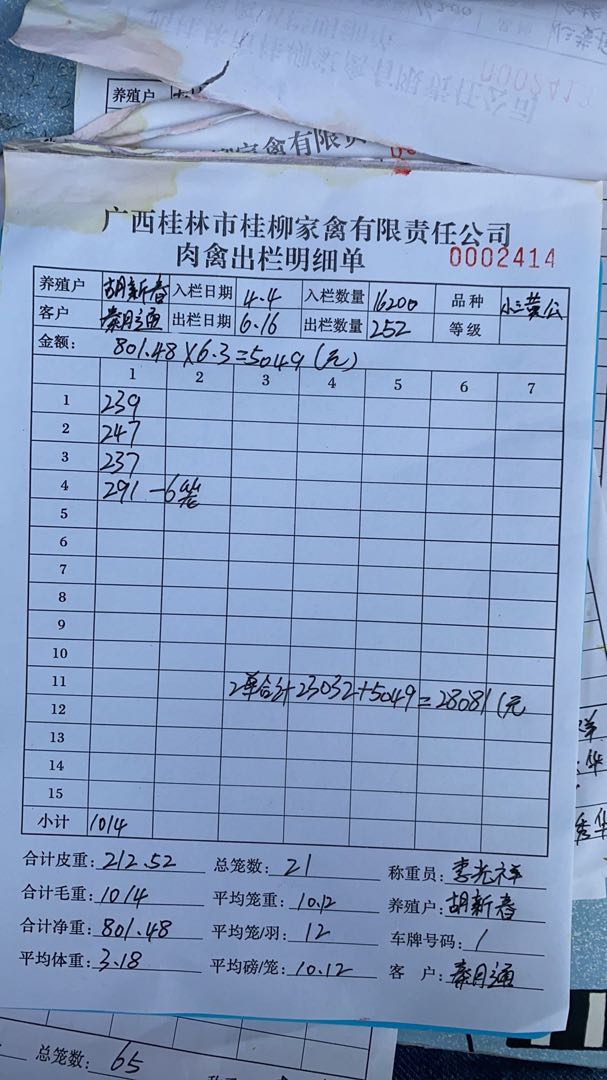 养殖户
广西桂林市桂柳家禽有限责任公司
肉禽出栏明细单 0002414
养殖户 胡新春 入栏日期 4.4 入栏数量 16200 品种 小三黄公
客户 秦月通 出栏日期 6.16 出栏数量 252 等级
金额: 801.48×6.3=5049(元)
1 2 3 4 5 6 7
1 239
2 247
3 237
4 291-6笼
5
6
7
8
9
10
11 2单合计23032+5049=28081(元
12
13
14
15
小计 1014
合计皮重: 212.52 总笼数: 21 称重员: 李光祥
合计毛重: 1014 平均笼重: 10.12 养殖户: 胡新春
合计净重: 801.48 平均笼/羽: 12 车牌号码: /
平均体重: 3.18 平均磅/笼: 10.12 客 户: 秦月通
总笼数: 65